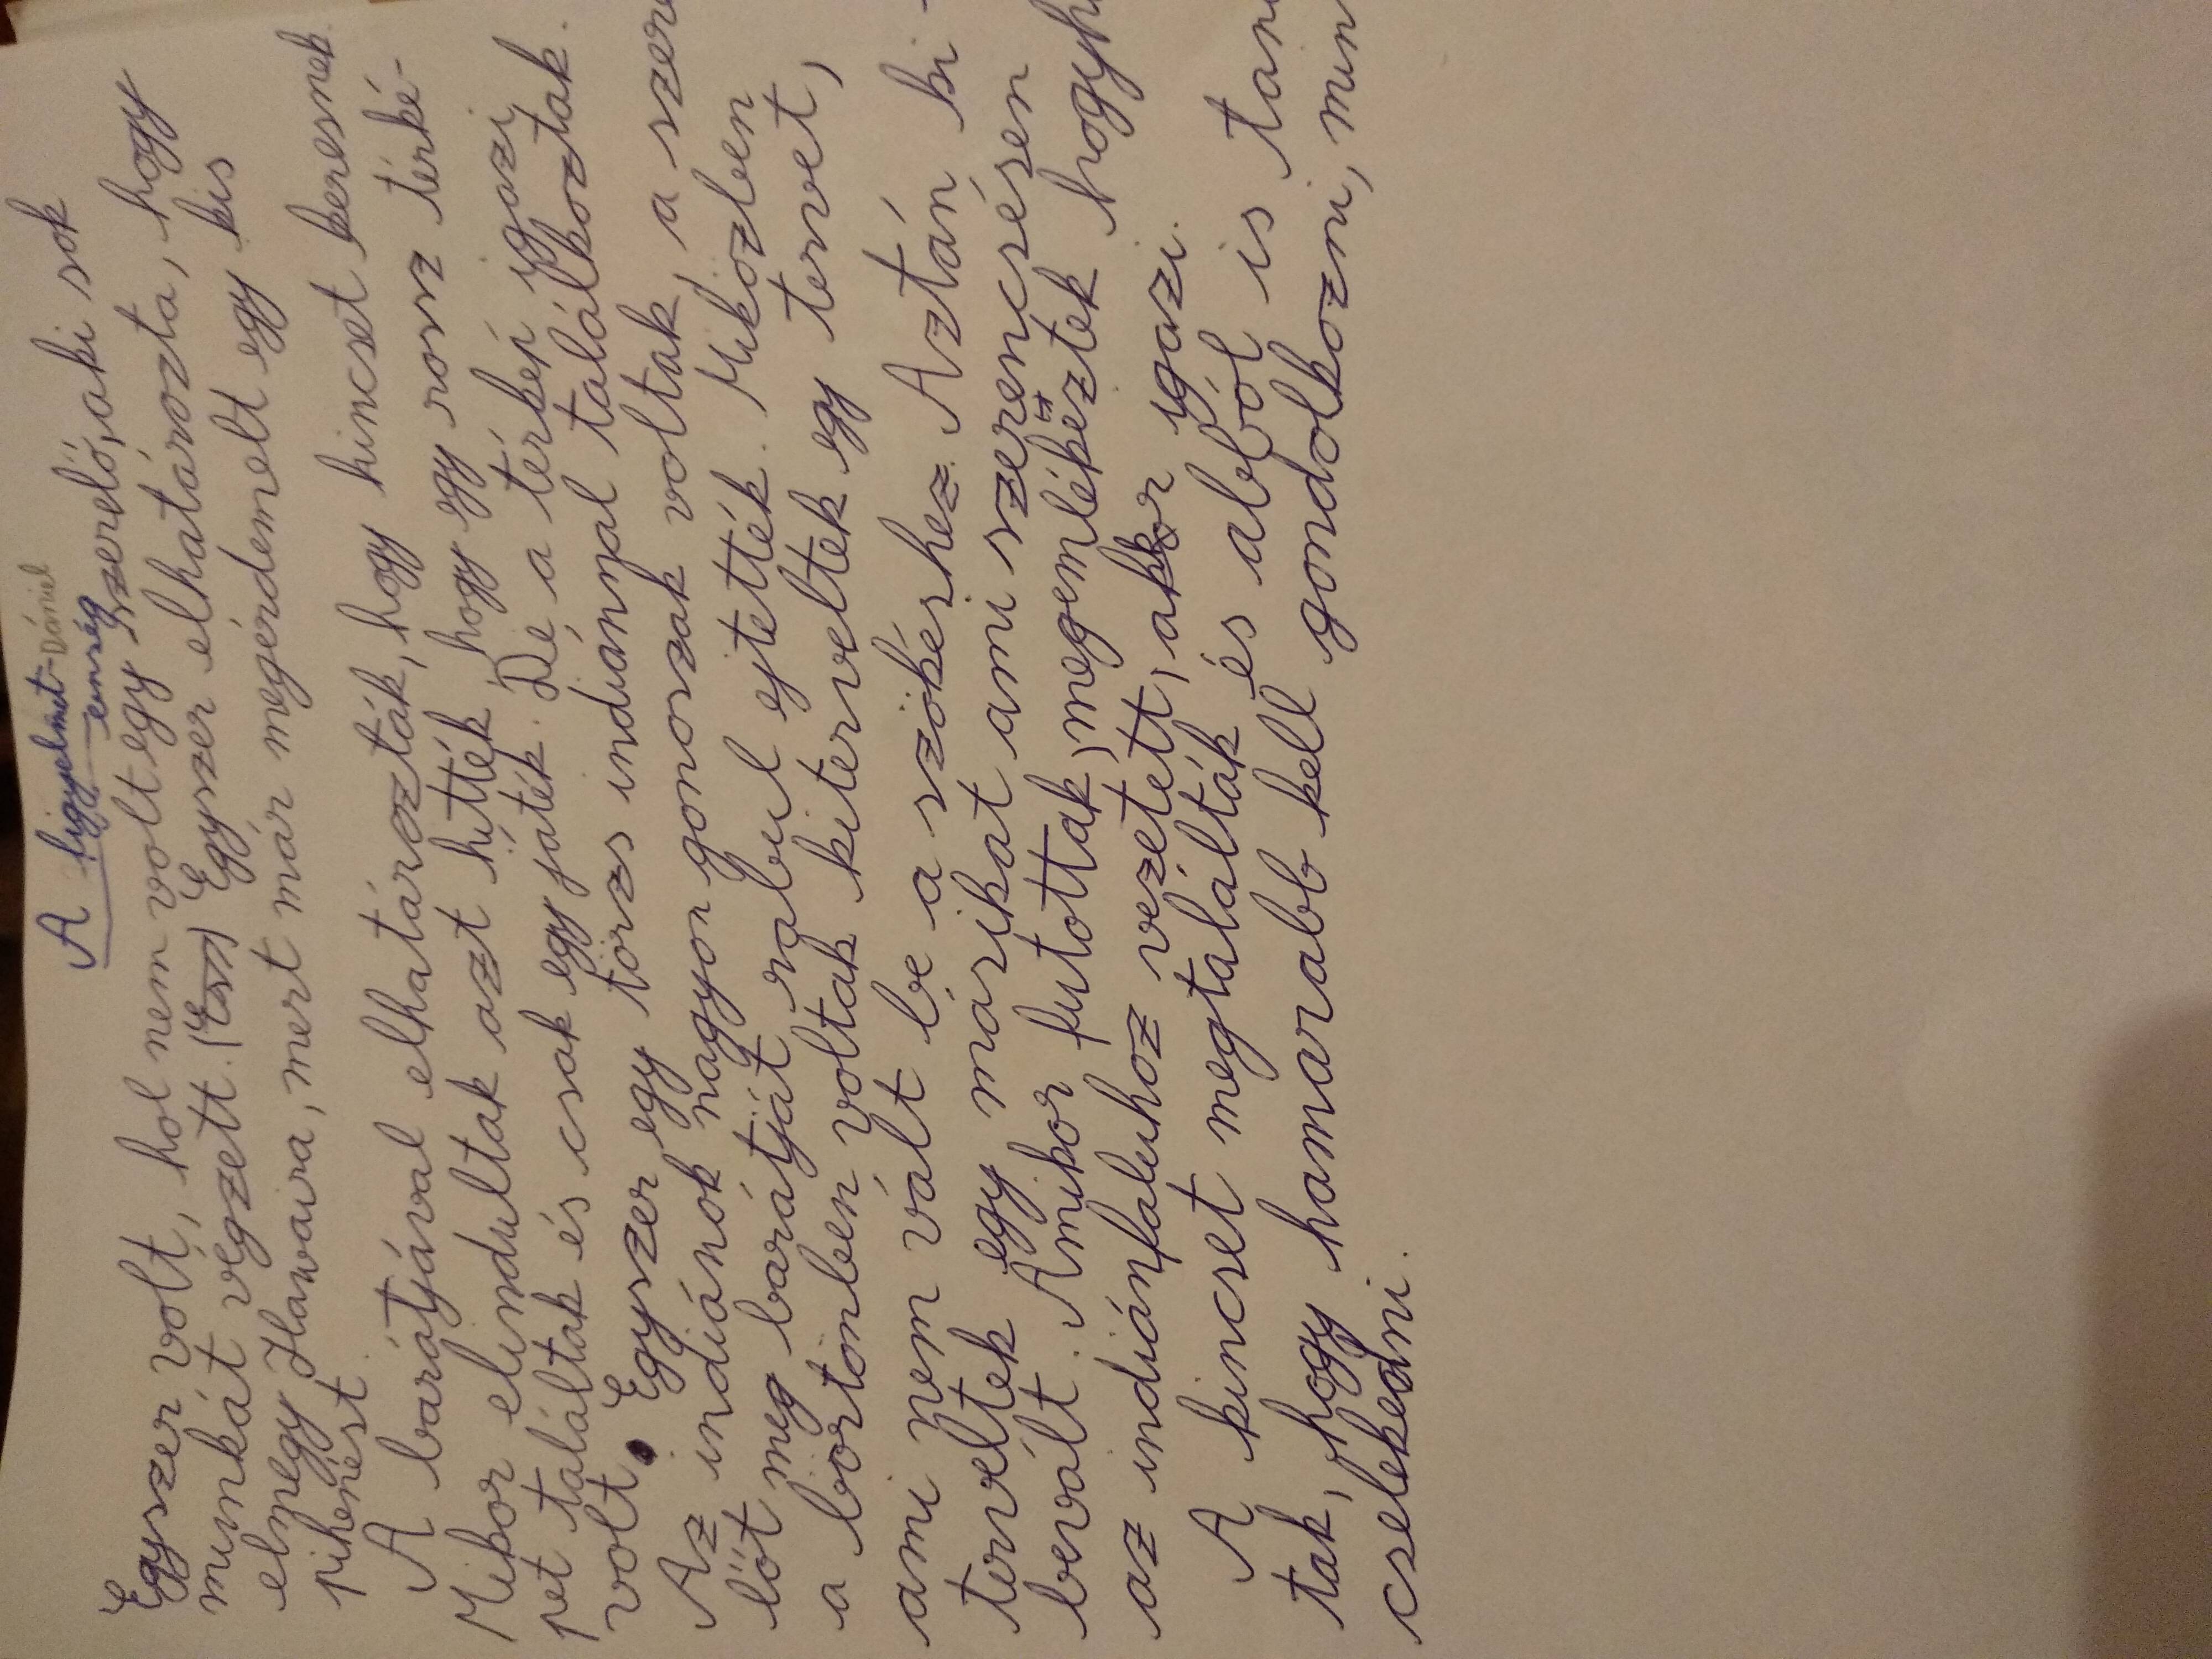 A figyelmet- Dániel
enség
Egyszer volt, hol nem volt egy szerelő, aki sok
munkát végzett. Egyszer elhatározta, hogy
elmegy Hawaira, mert már megérdemelt egy kis
pihenést.
A barátjával elhatározták, hogy kincset keresnek.
Mikor elindultak azt hitték hogy egy rossz térké-
pet találtak és csak egy játék. De a térkép igazi
volt. Egyszer egy törzs indiánnal találkoztak.
Az indiánok nagyon gonoszak voltak, a szere
lőt meg barátját rabul ejtették. Miközben
a börtönben voltak kiterveltek egy tervet,
ami nem vált be a szökéshez. Aztán ki-
terveltek egy másikat ami szerencsésen
bevált. Amikor futottak, megemlékeztek hogyh
az indiánfaluhoz vezetett, akkor igazi.
A kincset megtalálták és abból is tan
tak, hogy hamarabb kell gondolkozni, min
cselekedni.